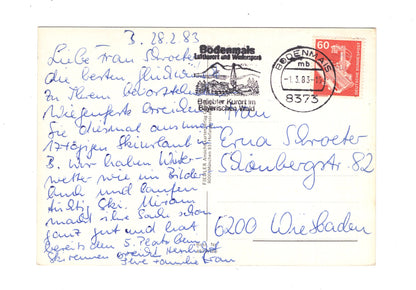 B., 28.2.83
Liebe Frau Schroeter
die besten Glückwün
zu Ihrem bevorstehen
Wiegenfeste erreichen
Sie diesmal aus unserem
17tägigen Skiurlaub in
B. Wir haben Winter-
wetter wie im Bilder-
buch und laufen
tüchtig Ski. Miriam
macht ihre Sache schon
ganz gut und hat
bereits den 5. Platz beim
Skirennen erreicht. Herzlichst
Ihre Familie
Bodenmais
Luftkurort und Wintersport
Beliebter Kurort im
Bayerischen Wald
BODENMAIS
mb
-1.3.83-
8373
60
DEUTSCHE BUNDESPOST
Frau
Erna Schroeter
Schönbergstr. 82
6200 Wiesbaden